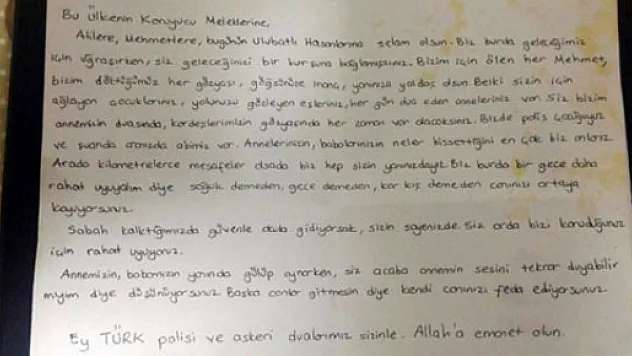 Bu Ülkenin Koruyucu Meleklerine,
Alilere, Mehmetlere, bugünün Ulubatlı Hasanlarına selam olsun. Biz burda geleceğimiz
için uğraşırken, siz geleceğinizi bir kurşuna bağlamışsınız. Bizim için ölen her Mehmet,
bizim döktüğümüz her gözyaşı, göğsünüze inanç, yanınıza yoldaş olsun. Belki sizin için
ağlayan çocuklarınız, yolunuzu gözleyen eşleriniz, her gün dua eden anneleriniz var. Siz bizim
annemizin duasında, kardeşlerimizin gözyaşında her zaman var olacaksınız. Bizde polis çocuğuyuz
ve şuanda aranızda abimiz var. Annelerinizin, babalarınızın neler hissettiğini en çok biz anlarız.
Arada kilometrelerce mesafeler olsada biz hep sizin yanınızdayız. Biz burda bir gece daha
rahat uyuyalım diye soğuk demeden, gece demeden, kar kış demeden canınızı ortaya
koyuyorsunuz.
Sabah kalktığımızda güvenle okula gidiyorsak, sizin sayenizde. Siz orda bizi koruduğunuz
için rahat uyuyoruz.
Annemizin, babamızın yanında gülüp oynarken, siz acaba annemin sesini tekrar duyabilir
miyim diye düşünüyorsunuz. Başka canlar gitmesin diye kendi canınızı feda ediyorsunuz.
Ey TÜRK polisi ve askeri dualarımız sizinle. Allah'a emanet olun.